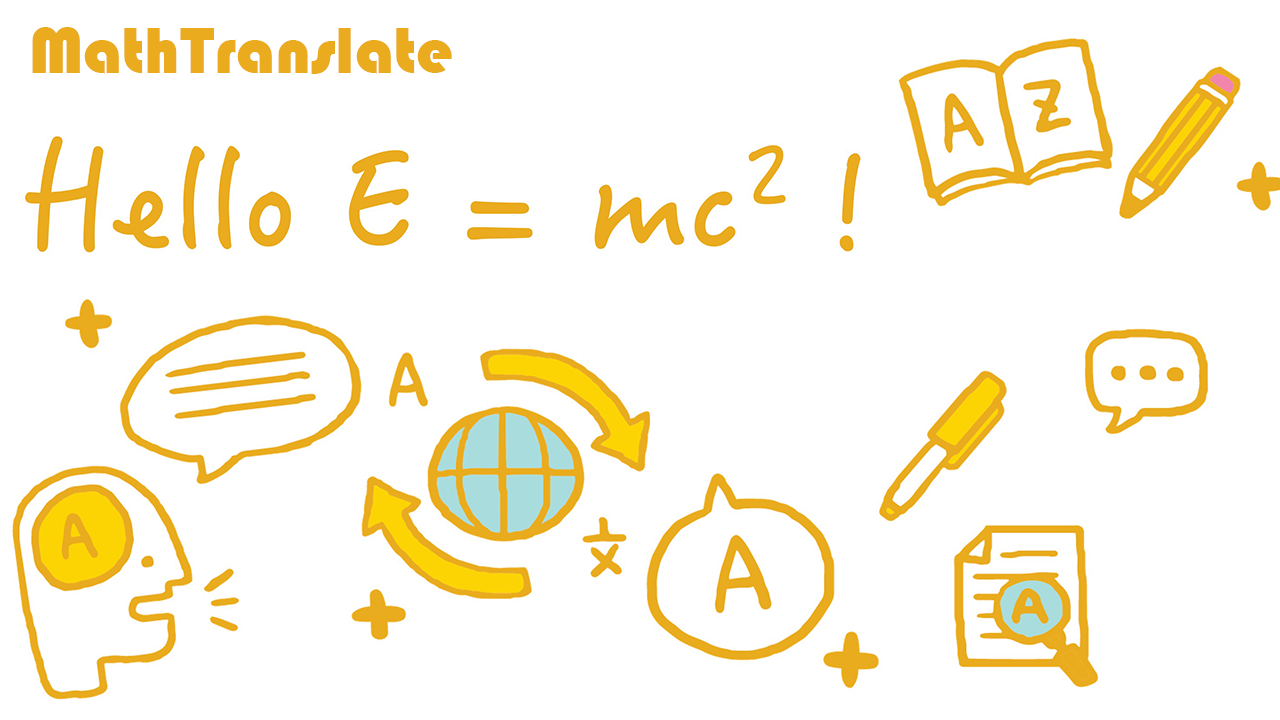 MathTranslate
Hello E = mc² !
A Z
A
1/x
A
A
A